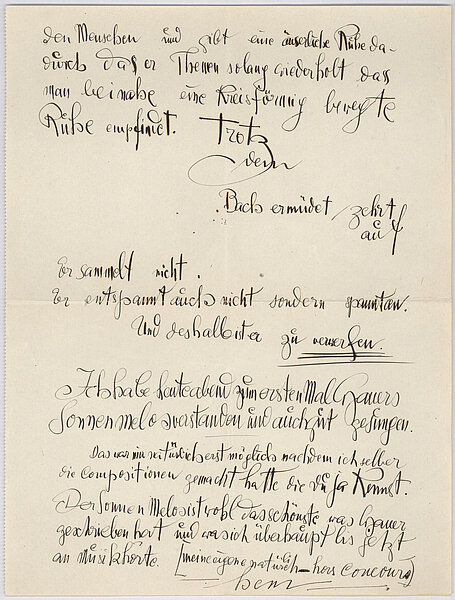 den Menschen und gibt eine äusserliche Ruhe da-
durch das er Themen solang wiederholt dass
man beinahe eine Kreisförmig bewegte
Ruhe empfindet. Trotz
dem
Bach ermüdet zehrt
auf
Er sammelt nicht.
Er entspannt auch nicht sondern spannt an.
Und deshalb ist er zu verwerfen.
Ich habe heute abend zum ersten Mal Hauers
Sonnenmelos verstanden und auch gut gesungen.
Das war mir natürlich erst möglich nachdem ich selber
die Compositionen gemacht hatte die Du ja kennst.
Der Sonnen Melos ist wohl das schönste was Hauer
geschrieben hat und was ich überhaupt bis jetzt
an Musik hörte. (meine eigene natürlich – hors concours)